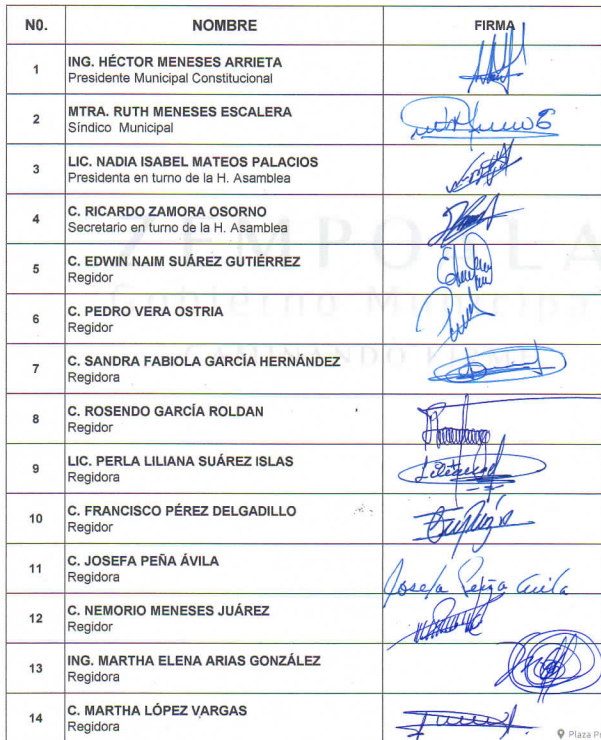 N0. NOMBRE FIRMA
1 ING. HÉCTOR MENESES ARRIETA
Presidente Municipal Constitucional
2 MTRA. RUTH MENESES ESCALERA
Síndico Municipal
3 LIC. NADIA ISABEL MATEOS PALACIOS
Presidenta en turno de la H. Asamblea
4 C. RICARDO ZAMORA OSORNO
Secretario en turno de la H. Asamblea
5 C. EDWIN NAIM SUÁREZ GUTIÉRREZ
Regidor
6 C. PEDRO VERA OSTRIA
Regidor
7 C. SANDRA FABIOLA GARCÍA HERNÁNDEZ
Regidora
8 C. ROSENDO GARCÍA ROLDAN
Regidor
9 LIC. PERLA LILIANA SUÁREZ ISLAS
Regidora
10 C. FRANCISCO PÉREZ DELGADILLO
Regidor
11 C. JOSEFA PEÑA ÁVILA
Regidora
Josefa Peña Avila
12 C. NEMORIO MENESES JUÁREZ
Regidor
13 ING. MARTHA ELENA ARIAS GONZÁLEZ
Regidora
14 C. MARTHA LÓPEZ VARGAS
Regidora
Plaza